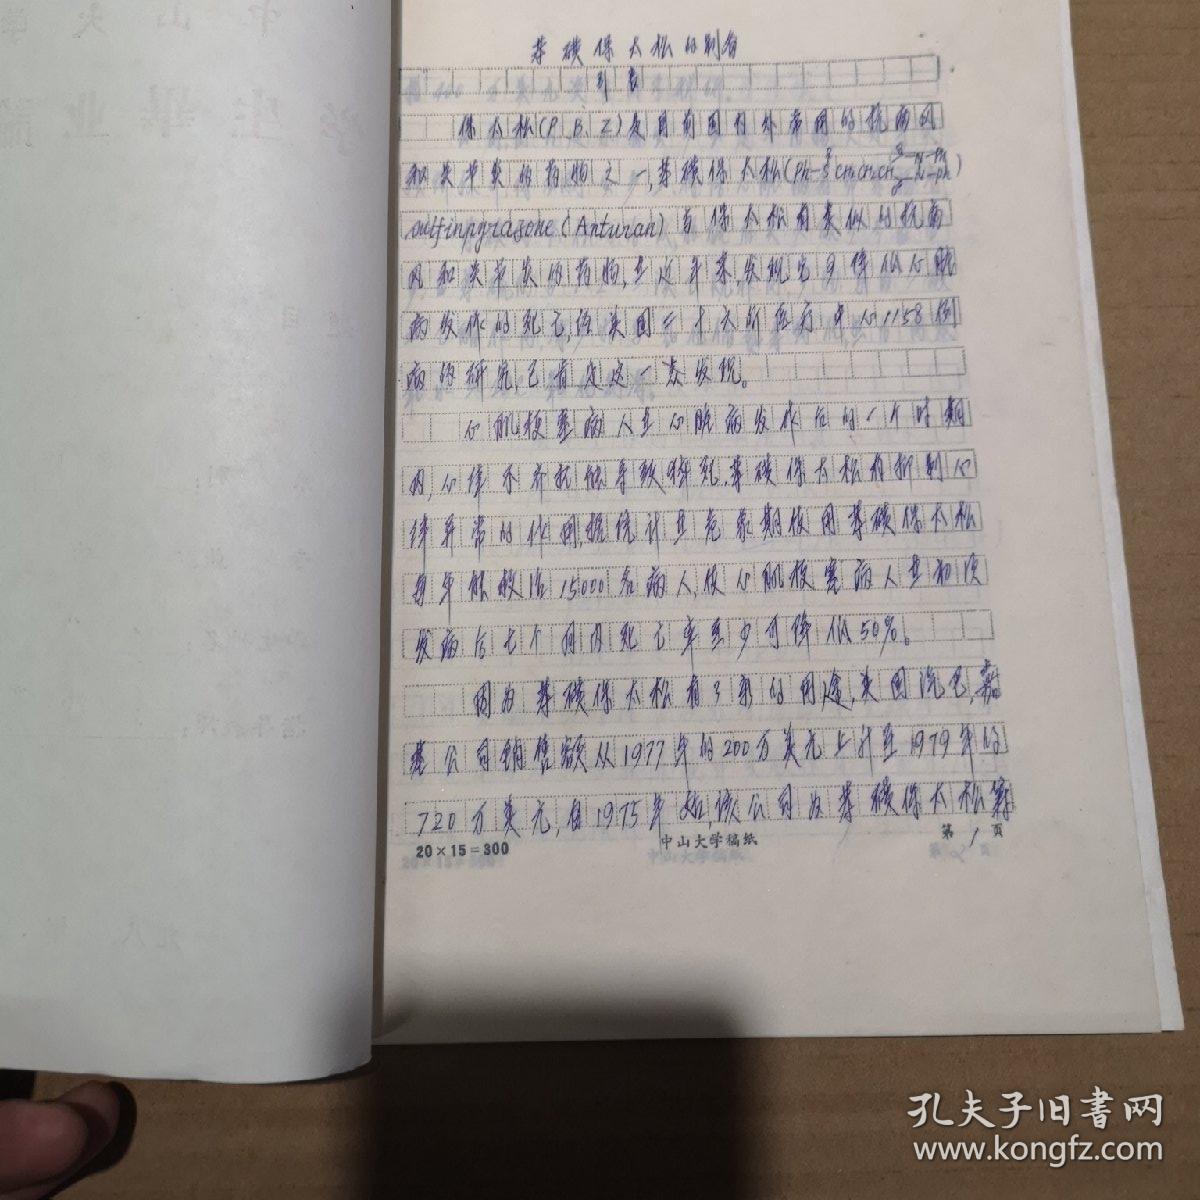 苯磺保太松的制备
引言
保太松(P.B.Z)是目前国内外常用的抗痛风
和关节炎的药物之一,苯磺保太松(ph-SCH₂CH₂CH N-ph N-ph)
sulfinpyrazone(Anturan)与保太松有类似的抗痛
风和关节炎的药物,且近年来,发现它可降低心脏
病发作的死亡,经美国二十六所医疗中心1158例
病的研究,已肯定这一点发现。
心肌梗塞病人在心脏病发作后的一个时期
内,心律不齐抵触导致猝死,苯磺保太松有抑制心
律异常的作用,据统计在危象期使用苯磺保太松
每年能救活15000名病人,使心肌梗塞病人在初次
发病后七个月内死亡率至少可降低50%。
因为苯磺保太松有了新的用途,美国汽巴,嘉
基公司销售额从1977年的200万美元上升至1979年的
720万美元,自1975年起,该公司为苯磺保太松
20×15=300
中山大学稿纸
第1页
孔夫子旧书网
www.kongfz.com